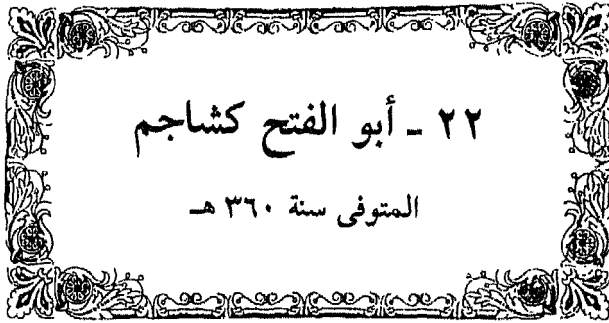 ٢٢ - أبو الفتح كشاجم
المتوفى سنة ٣٦٠ هـ